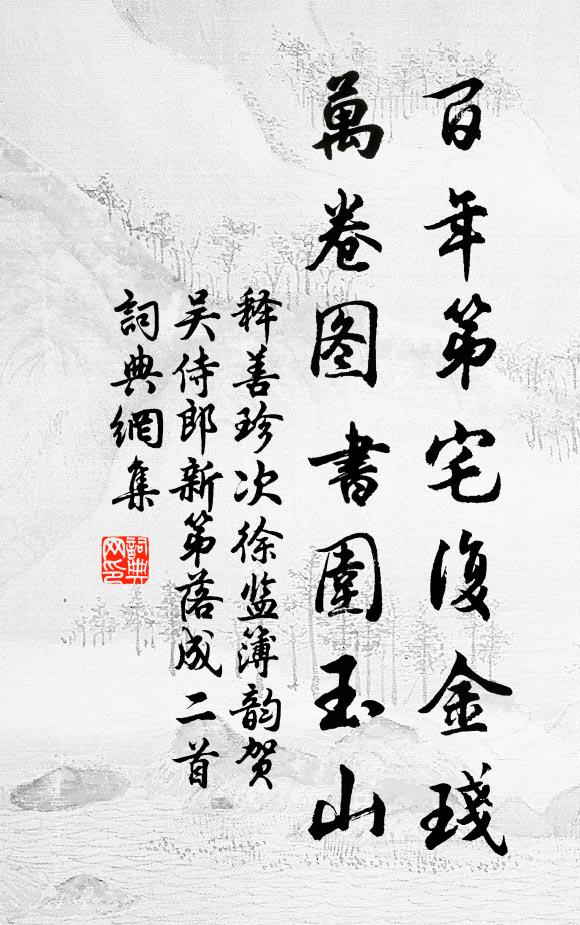 百年第宅復金琖
萬卷图書圍玉山
释善珍次徐监簿韵贺
吴侍郎新第落成二首
詞典網集
詞典网印